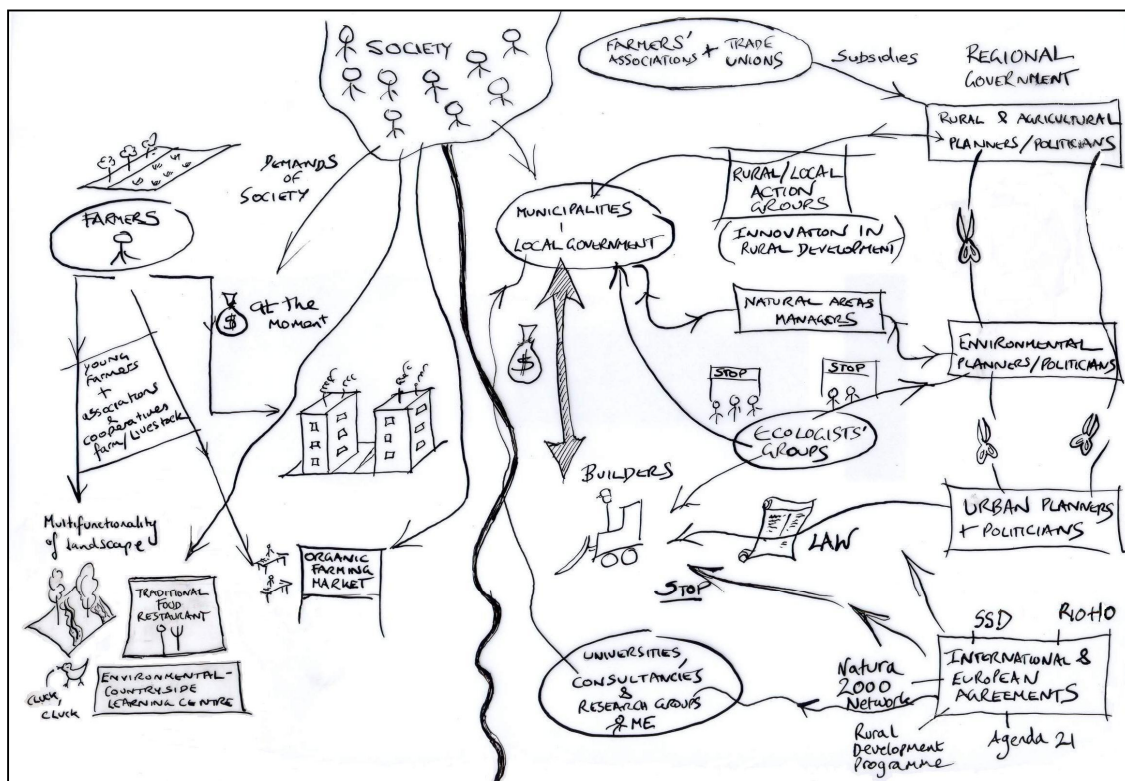 SOCIETY
FARMERS'
ASSOCIATIONS + TRADE
UNIONS
Subsidies
REGIONAL
GOVERNMENT
RURAL & AGRICULTURAL
PLANNERS/POLITICIANS
DEMANDS
OF
SOCIETY
FARMERS
$
at the
moment
YOUNG
farmers
+
associations
&
cooperatives
farm/Livestock
MUNICIPALITIES
LOCAL GOVERNMENT
RURAL/LOCAL
ACTION
GROUPS
(INNOVATION IN
RURAL DEVELOPMENT)
NATURAL AREAS
MANAGERS
ENVIRONMENTAL
PLANNERS/POLITICIANS
$
STOP
STOP
ECOLOGISTS'
GROUPS
BUILDERS
URBAN PLANNERS
+ POLITICIANS
LAW
STOP
Multifunctionality
of landscape
TRADITIONAL
FOOD
RESTAURANT
ORGANIC
FARMING
MARKET
CLUCK,
CLUCK
ENVIRONMENTAL-
COUNTRYSIDE
LEARNING CENTRE
UNIVERSITIES,
CONSULTANCIES
&
RESEARCH GROUPS
ME
SSD
INTERNATIONAL &
EUROPEAN
AGREEMENTS
Natura
2000
Network
Rural
Development
Programme
Agenda 21